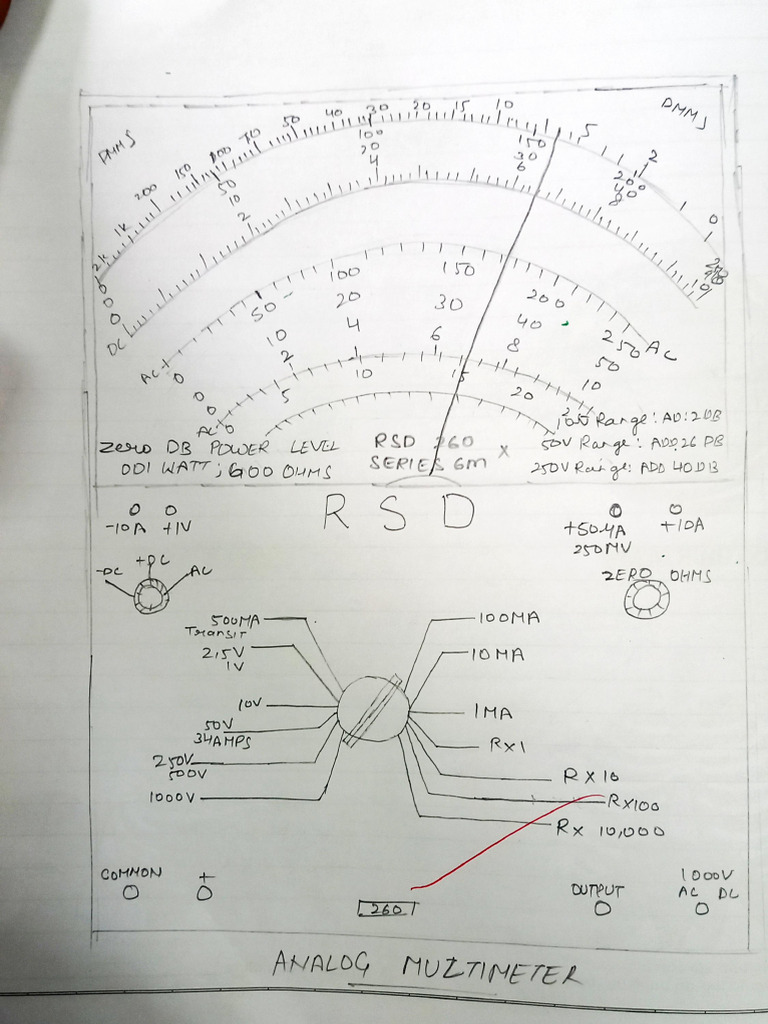 DMMS
DMMS
2k 1k 200 150 100 70 50 40 30 20 15 10 5 2 0
0 50 100 150 200 250
0 10 20 30 40
0 2 4 6 8 10
DC
AC 0 50 100 150 200 250 AC
0 10 20 30 40 50
0 2 4 6 8 10
AC 0 5 10 15 20
ZERO DB POWER LEVEL
001 WATT; 600 OHMS
RSD 260
SERIES 6M
X
Range: AD: 2DB
50V Range: ADD.26 DB
250V Range: ADD 40DB
R S D
-10A +1V
+50.4A
250MV
+10A
-DC +DC AC
ZERO OHMS
500MA
Transit
2,5V
1V
10V
50V
34AMPS
250V
500V
1000V
100MA
10MA
1MA
RX1
RX10
RX100
RX 10,000
COMMON +
260
OUTPUT
1000V
AC DC
ANALOG MULTIMETER